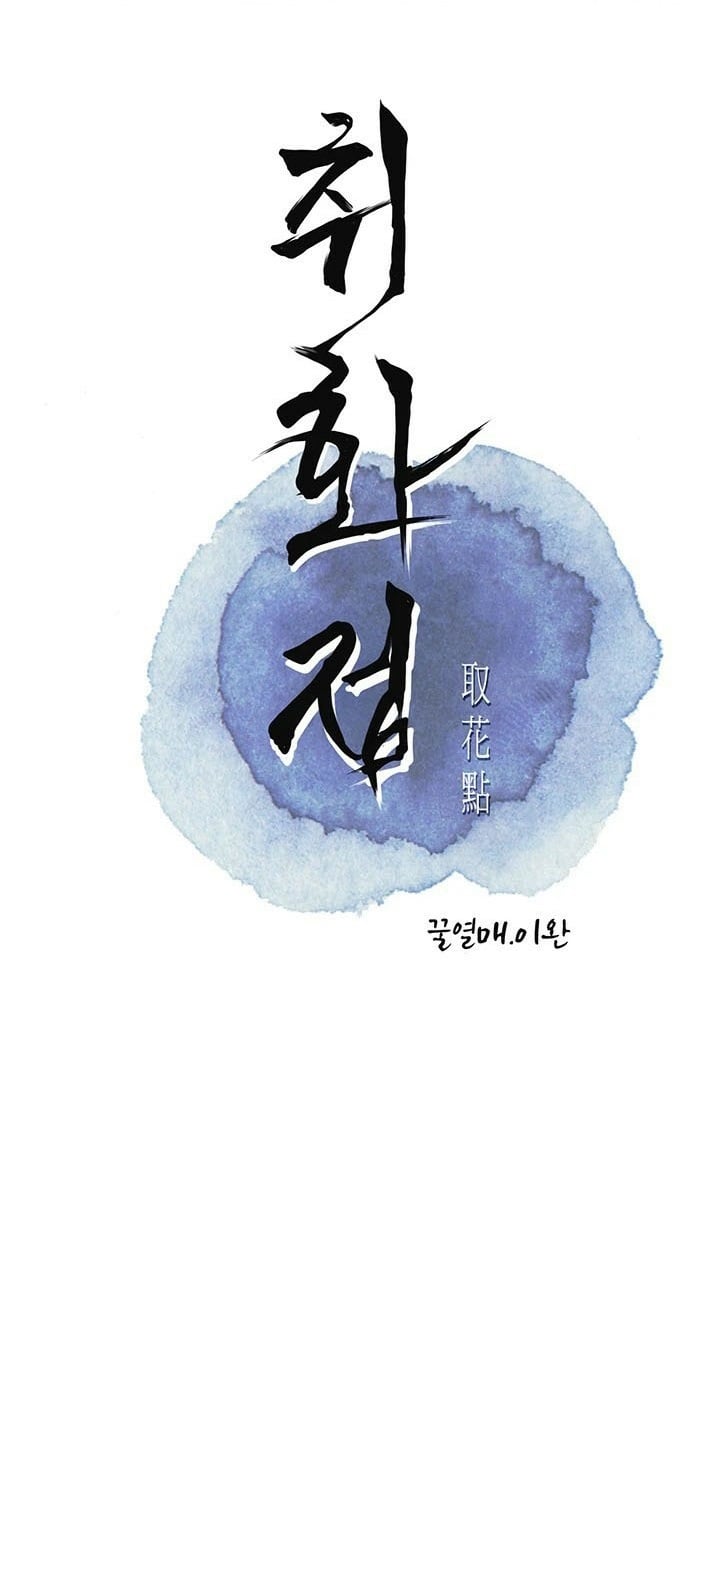 취화점
取花點
꿀열매.이완